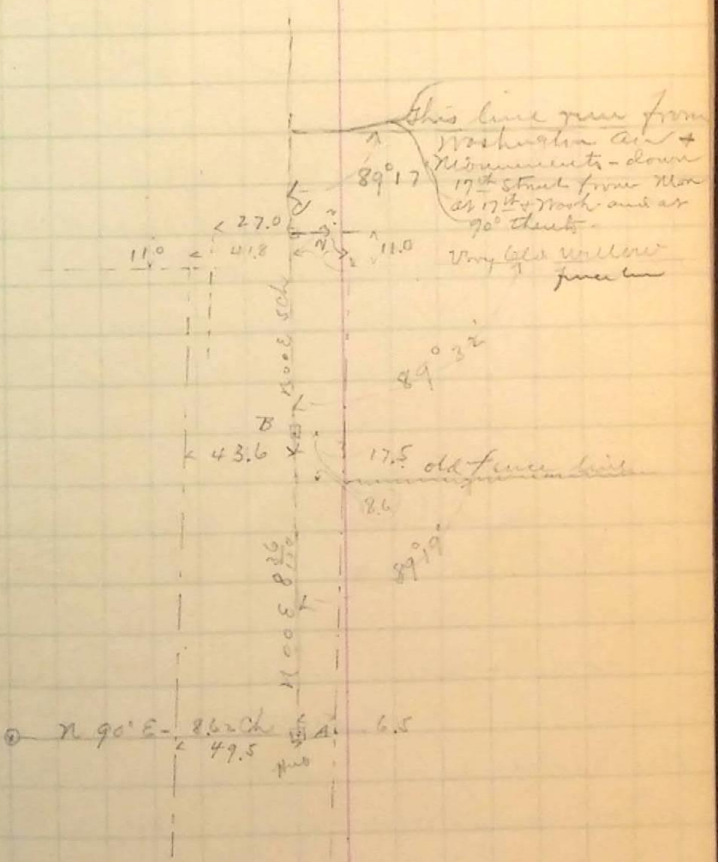 This line run from
Washington Ave +
Monuments - down
17th Street from Mon
at 17th + Wash and at
90° thereto -
89° 17'
27.0
41.8
11.0
11.0
Very Old Willow
fence line
N 00 E 5 Ch
89° 32'
B
43.6
17.5 old Fence line
8.6
89° 19'
N 00 E 8
N 90° E - 8.62 Ch
A
6.5
49.5
Hub